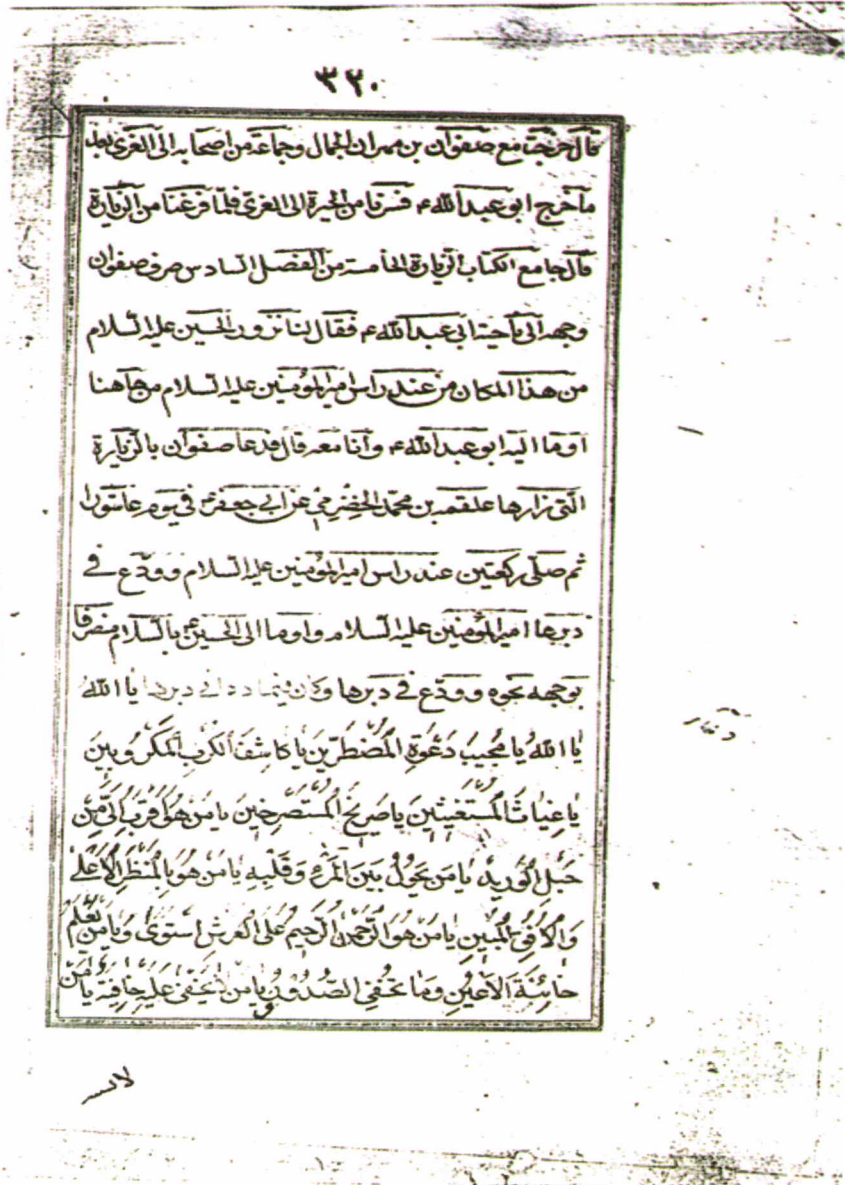 ٣٢٠
قال خرجت مع صفوان بن مهران الجمال وجماعة من اصحابه الى الغرى بعد
ما خرج ابو عبد الله ع فسرنا من الحيرة الى الغرى فلما فرغنا من الزيارة
قال جامع الكتاب الزيارة الخامسة من الفصل السادس صرف صفوان
وجهه الى ناحية ابى عبد الله ع فقال لنا تزورون الحسين عليه السلام
من هذا المكان من عند راس امير المؤمنين عليه السلام من هاهنا
اوما اليه ابو عبد الله ع وانا معه قال فدعا صفوان بالزيارة
التى زارها علقمه بن محمد الحضرمى عن ابى جعفر ع فى يوم عاشورا
ثم صلى ركعتين عند راس امير المؤمنين عليه السلام وودع فى
دبرها امير المؤمنين عليه السلام واوما الى الحسين ع بالسلام منصرفا
بوجهه نحوه وودع فى دبرها وكان فيما دعا فى دبرها يا الله
يا الله يا مُجيبَ دَعْوَةِ المُضطَرّينَ يا كاشِفَ الكُرَبِ المَكرُوبينَ
يا غِياثَ المُستَغيثينَ يا صَريخَ المُستَصرِخينَ يا مَن هُوَ اَقرَبُ اِلَىَّ مِن
حَبلِ الوَريدِ يا مَن يَحُولُ بَينَ المَرءِ وَقَلبِهِ يا مَن هُوَ بِالمَنظَرِ الاَعلى
وَالاُفُقِ المُبينِ يا مَن هُوَ الرَّحمنُ الرَّحيمُ عَلَى العَرشِ استَوى وَيا مَن يَعلَمُ
خائِنَةَ الاَعيُنِ وَما تُخفِى الصُّدُورُ يا مَن لا يَخفى عَلَيهِ خافِيَةٌ يا مَن
لا